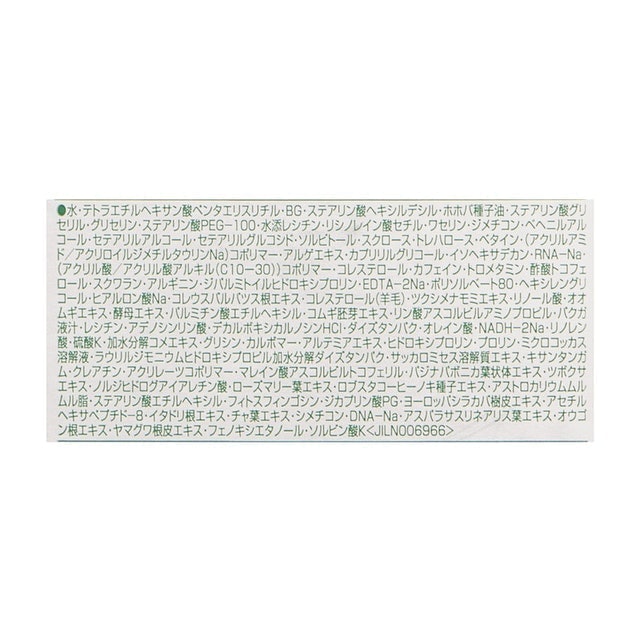 ●水・テトラエチルヘキサン酸ペンタエリスリチル・BG・ステアリン酸ヘキシルデシル・ホホバ種子油・ステアリン酸グリ
セリル・グリセリン・ステアリン酸PEG-100・水添レシチン・リシノレイン酸セチル・ワセリン・ジメチコン・ベヘニルアル
コール・セテアリルアルコール・セテアリルグルコシド・ソルビトール・スクロース・トレハロース・ベタイン・(アクリルアミ
ド/アクリロイルジメチルタウリンNa)コポリマー・アルゲエキス・カプリリルグリコール・イソヘキサデカン・RNA-Na・
(アクリル酸/アクリル酸アルキル(C10-30))コポリマー・コレステロール・カフェイン・トロメタミン・酢酸トコフェ
ロール・スクワラン・アルギニン・ジパルミトイルヒドロキシプロリン・EDTA-2Na・ポリソルベート80・ヘキシレングリ
コール・ヒアルロン酸Na・コレウスバルバツス根エキス・コレステロール(羊毛)・ツクシメナモミエキス・リノール酸・オオ
ムギエキス・酵母エキス・パルミチン酸エチルヘキシル・コムギ胚芽エキス・リン酸アスコルビルアミノプロピル・バクガ
液汁・レシチン・アデノシンリン酸・デカルボキシカルノシンHCl・ダイズタンパク・オレイン酸・NADH-2Na・リノレン
酸・硫酸K・加水分解コメエキス・グリシン・カルボマー・アルテミアエキス・ヒドロキシプロリン・プロリン・ミクロコッカス
溶解液・ラウリルジモニウムヒドロキシプロピル加水分解ダイズタンパク・サッカロミセス溶解質エキス・キサンタンガ
ム・クレアチン・アクリレーツコポリマー・マレイン酸アスコルビルトコフェリル・パジナパボニカ葉状体エキス・ツボクサ
エキス・ノルジヒドログアイアレチン酸・ローズマリー葉エキス・ロブスタコーヒーノキ種子エキス・アストロカリウムムル
ムル脂・ステアリン酸エチルヘキシル・フィトスフィンゴシン・ジカプリル酸PG・ヨーロッパシラカバ樹皮エキス・アセチル
ヘキサペプチド-8・イタドリ根エキス・チャ葉エキス・シメチコン・DNA-Na・アスパラサスリネアリス葉エキス・オウゴ
ン根エキス・ヤマグワ根皮エキス・フェノキシエタノール・ソルビン酸K<JILN006966>